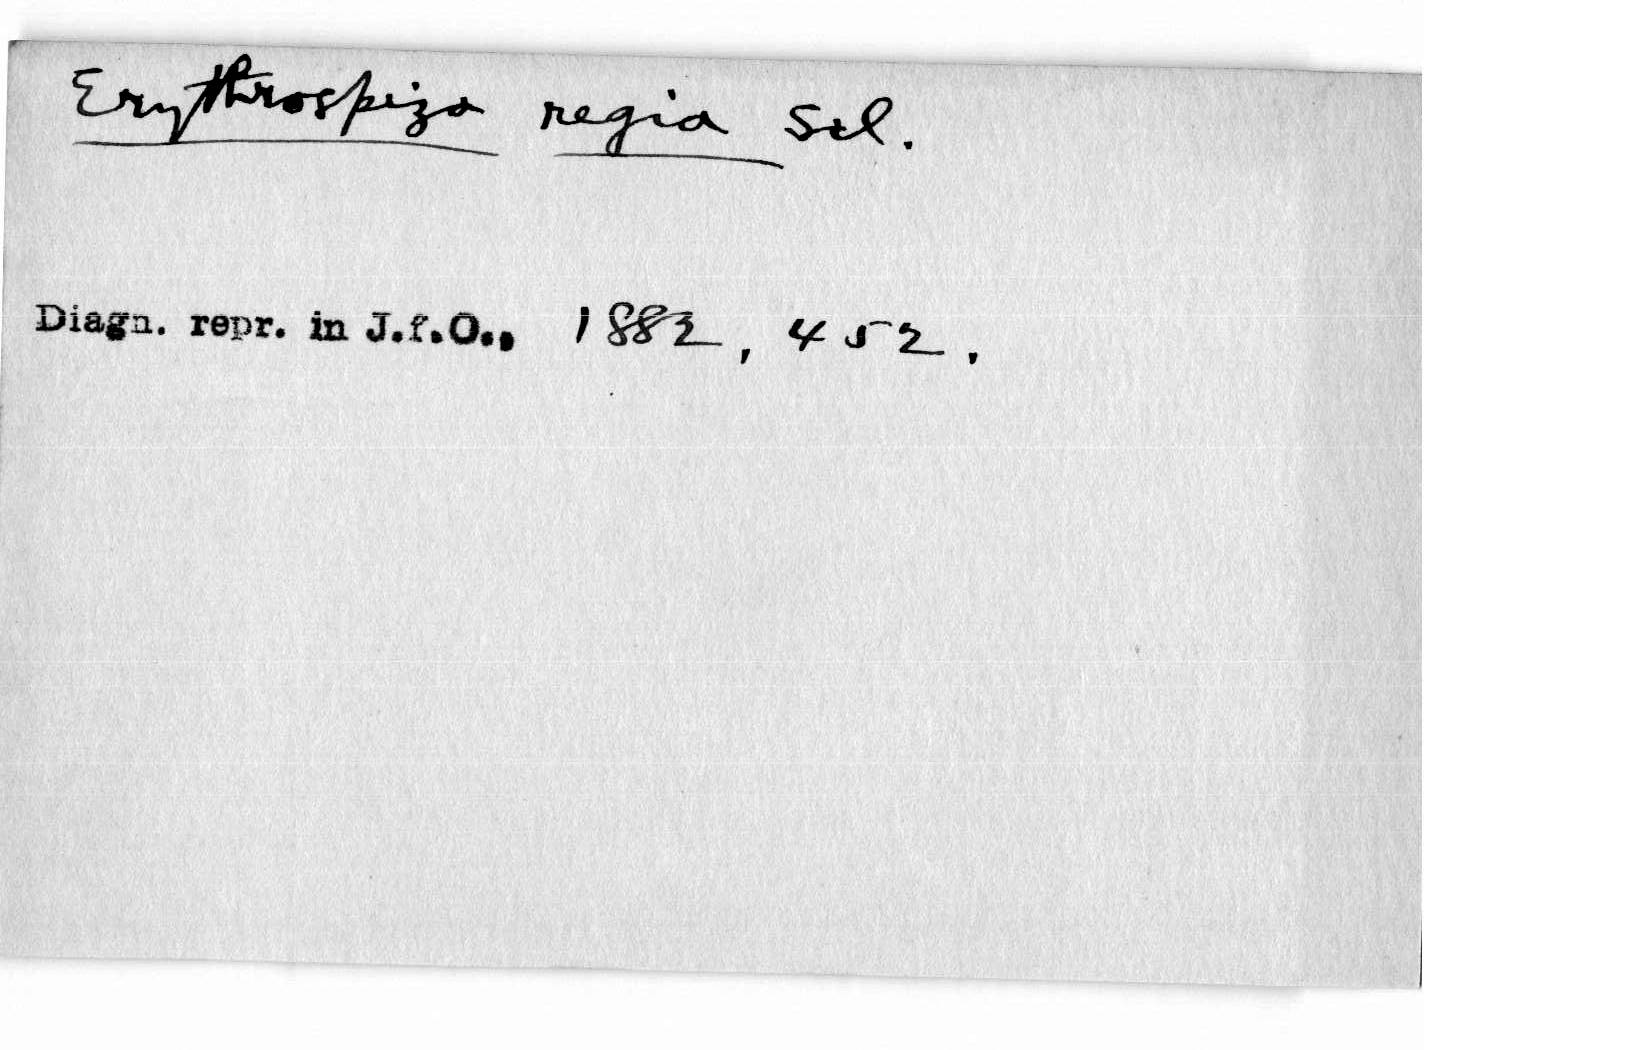 Erythrospiza regia Scl.
Diagn. repr. in J.f.O., 1882, 452.